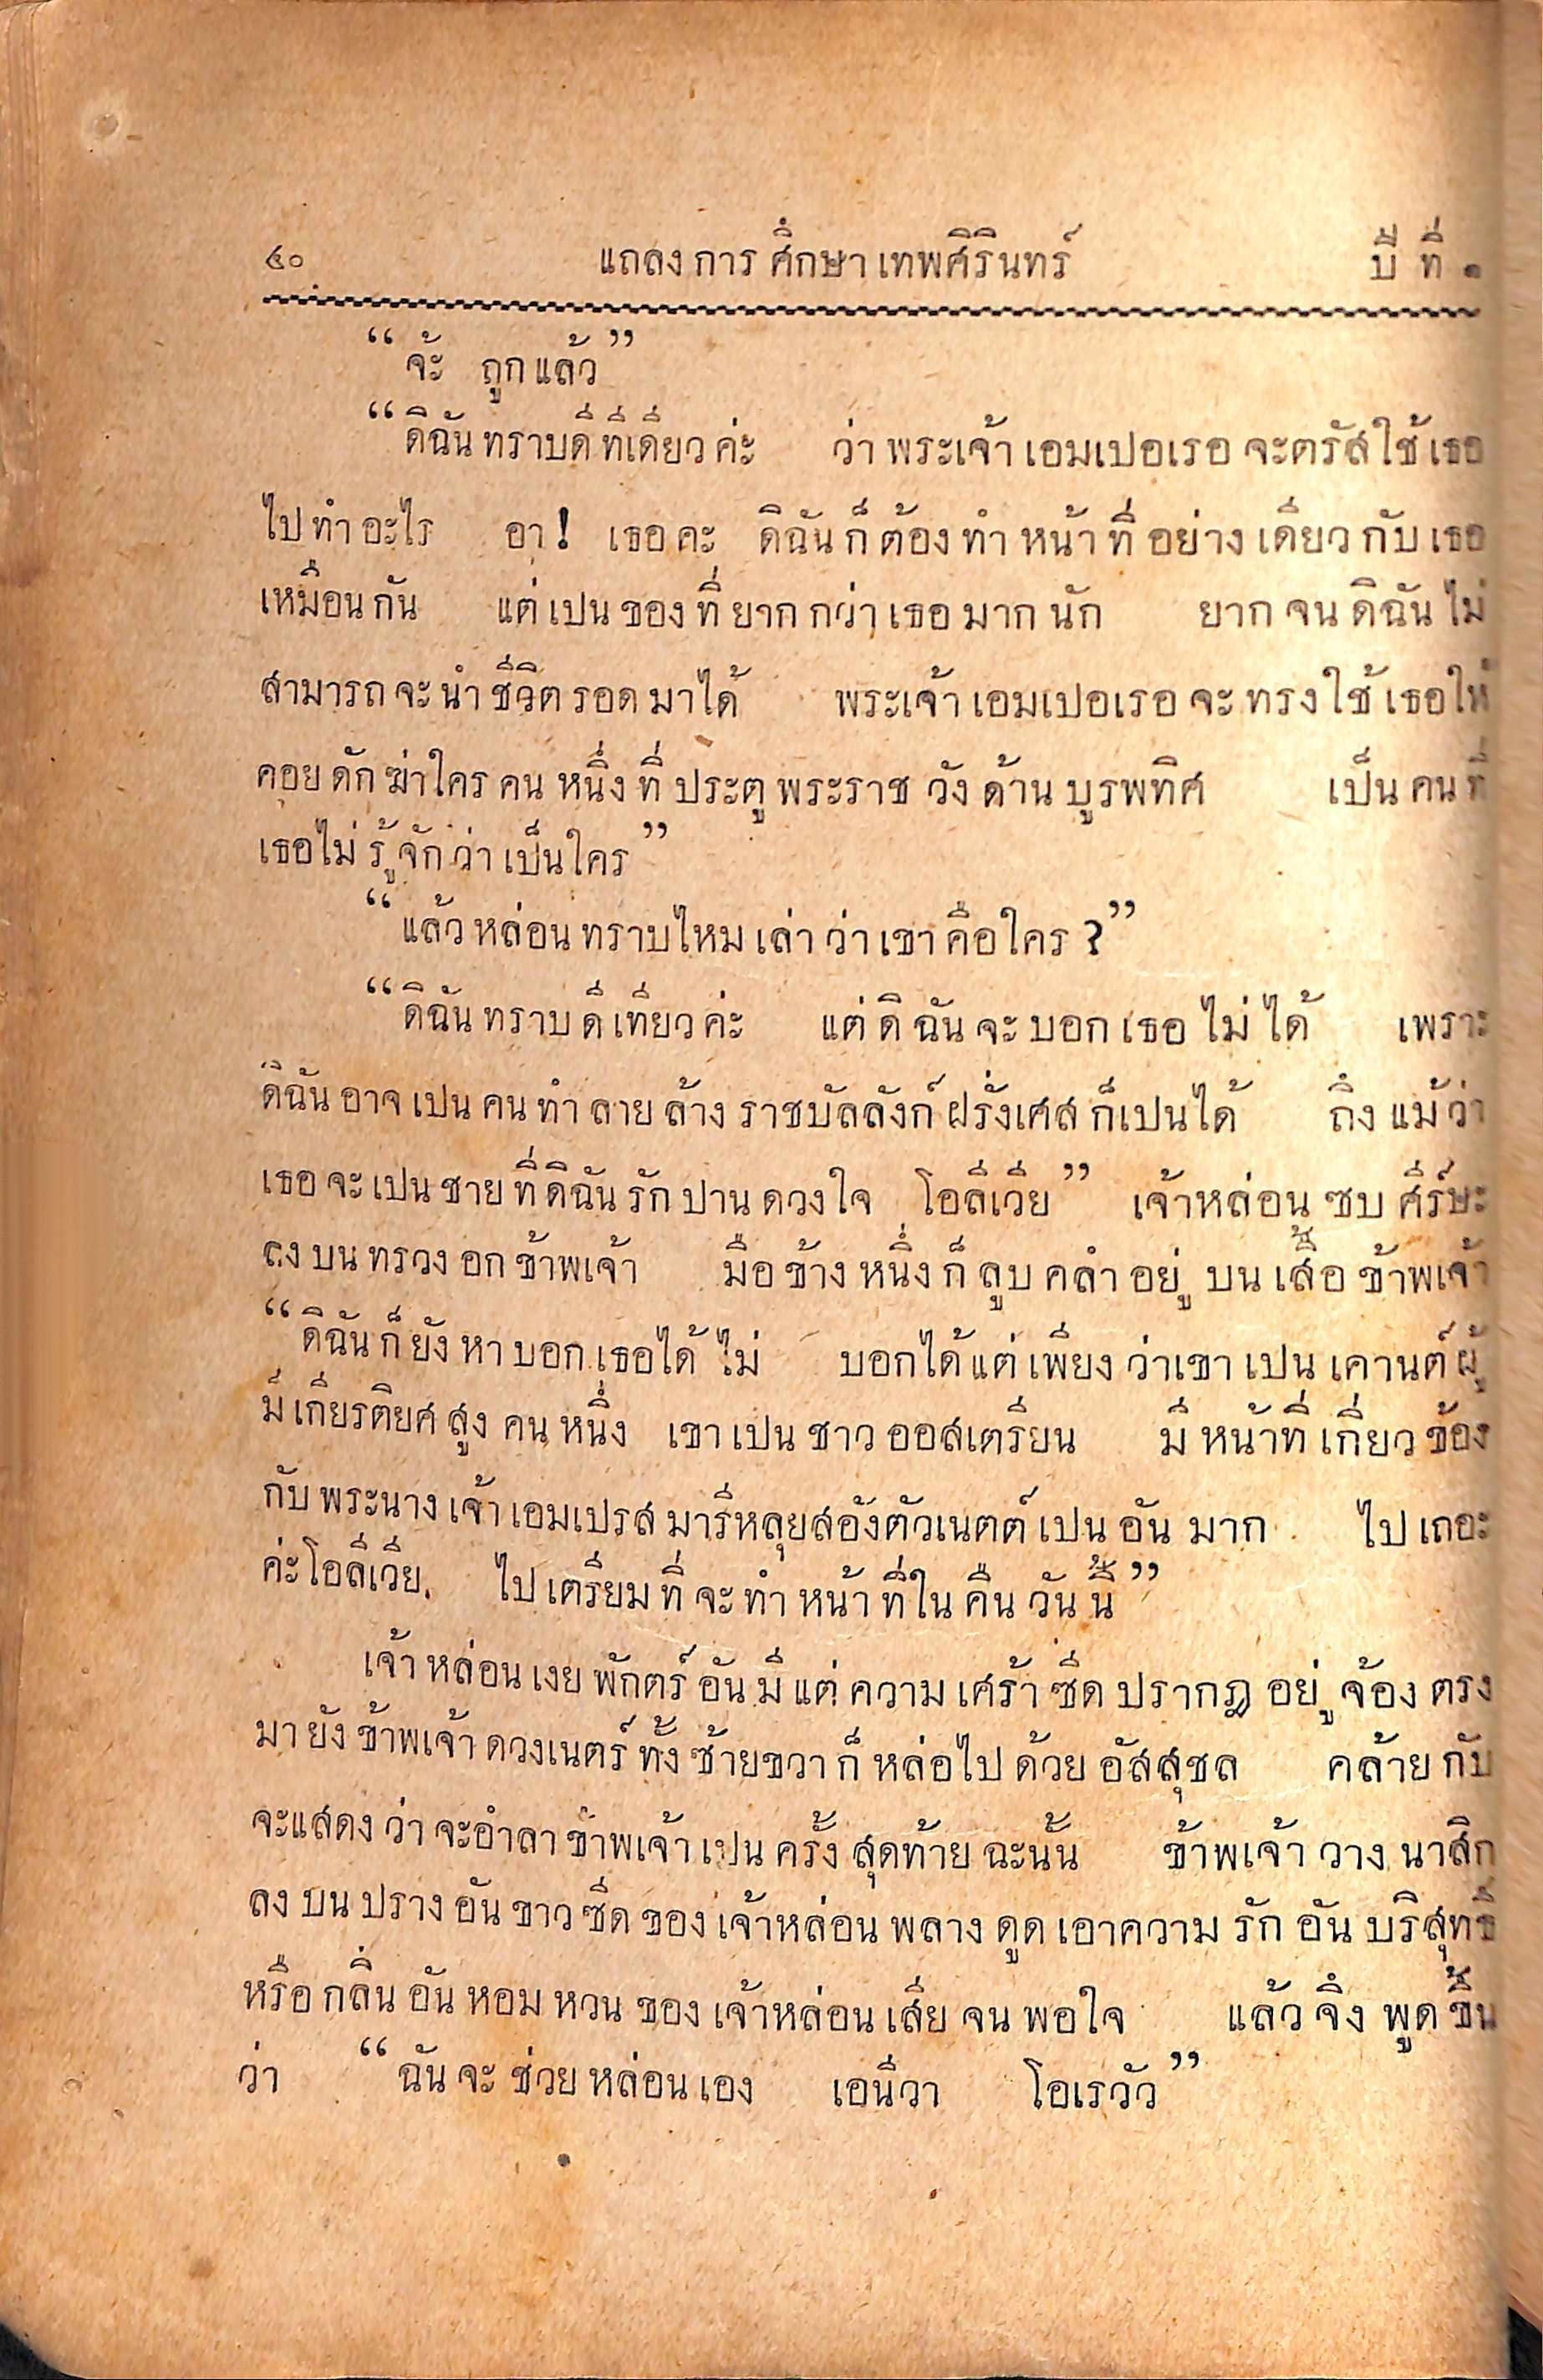 ๔๐ แถลงการศึกษาเทพศิรินทร์ ปีที่ ๑
“จ้ะ ถูกแล้ว”
“ดิฉันทราบดีทีเดียวค่ะ ว่าพระเจ้าเอมเปอเรอจะตรัสใช้เธอ
ไปทำอะไร อา! เธอคะ ดิฉันก็ต้องทำหน้าที่อย่างเดียวกับเธอ
เหมือนกัน แต่เปนของที่ยากกว่าเธอมากนัก ยากจนดิฉันไม่
สามารถจะนำชีวิตรอดมาได้ พระเจ้าเอมเปอเรอจะทรงใช้เธอให้
คอยดักฆ่าใครคนหนึ่งที่ประตูพระราชวังด้านบูรพทิศ เป็นคนที่
เธอไม่รู้จักว่าเป็นใคร”
“แล้วหล่อนทราบไหมเล่าว่าเขาคือใคร?”
“ดิฉันทราบดีเทียวค่ะ แต่ดิฉันจะบอกเธอไม่ได้ เพราะ
ดิฉันอาจเปนคนทำลายล้างราชบัลลังก์ฝรั่งเศสก็เปนได้ ถึงแม้ว่า
เธอจะเปนชายที่ดิฉันรักปานดวงใจ โอลีเวีย” เจ้าหล่อนซบศีร์ษะ
ลงบนทรวงอกข้าพเจ้า มือข้างหนึ่งก็ลูบคลำอยู่บนเสื้อข้าพเจ้า
“ดิฉันก็ยังหาบอกเธอได้ไม่ บอกได้แต่เพียงว่าเขาเปนเคานต์ผู้
มีเกียรติยศสูงคนหนึ่ง เขาเปนชาวออสเตรียน มีหน้าที่เกี่ยวข้อง
กับพระนางเจ้าเอมเปรสมารีหลุยสอังตัวเนตต์เปนอันมาก ไปเถอะ
ค่ะโอลีเวีย. ไปเตรียมที่จะทำหน้าที่ในคืนวันนี้”
เจ้าหล่อนเงยพักตร์อันมีแต่ความเศร้าซึดปรากฎอยู่จ้องตรง
มายังข้าพเจ้าดวงเนตร์ทั้งซ้ายขวาก็หล่อไปด้วยอัสสุชล คล้ายกับ
จะแสดงว่าจะอำลาข้าพเจ้าเปนครั้งสุดท้ายฉะนั้น ข้าพเจ้าวางนาสิก
ลงบนปรางอันขาวซีดของเจ้าหล่อนพลางดูดเอาความรักอันบริสุทธิ์
หรือกลิ่นอันหอมหวนของเจ้าหล่อนเสียจนพอใจ แล้วจึงพูดขึ้น
ว่า “ฉันจะช่วยหล่อนเอง เอนีวา โอเรวัว”